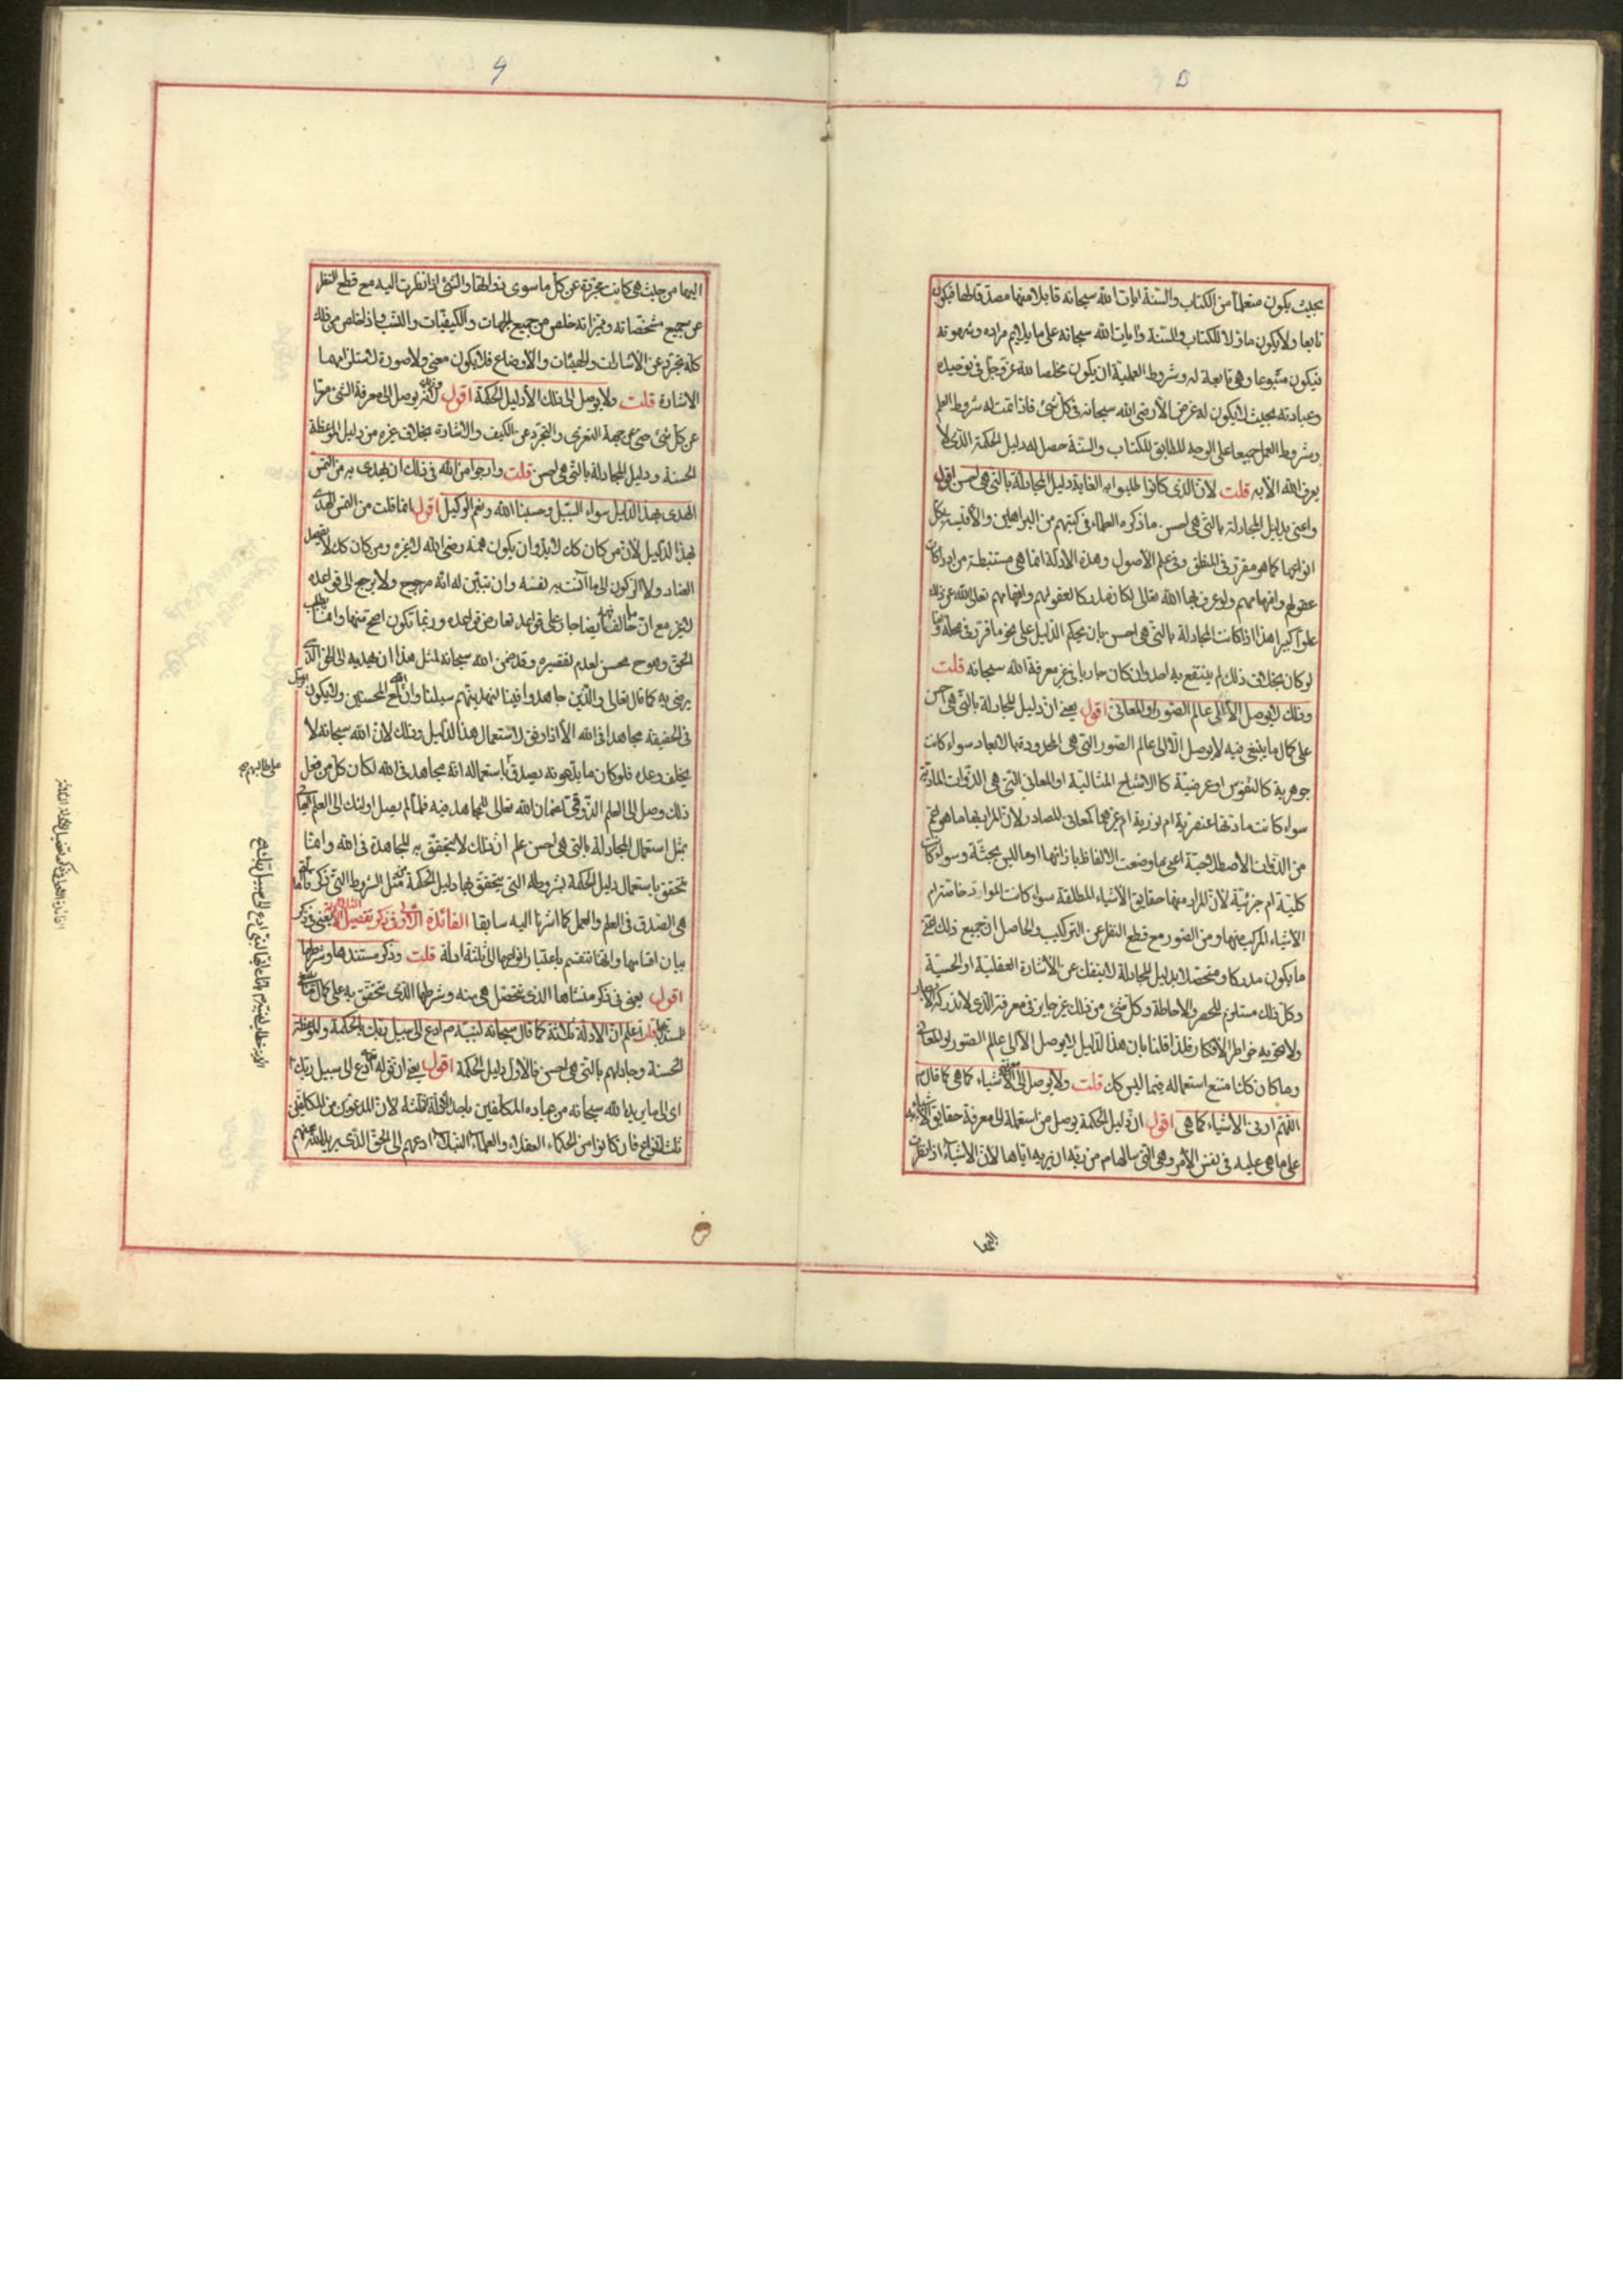 بحيث يكون متعلما من الكتاب والسنة وايات الله سبحانه قابلا منها مصدقا لها فيكون
تابعا ولا يكون ماولا للكتاب والسنة وايات الله سبحانه على ما يلايم مراده وشهوته
فيكون متبوعا وهى تابعة له وشروط العملية ان يكون مخلصا لله عز وجل فى توحيده
وعبادته بحيث لا يكون له غرض الا رضى الله سبحانه فى كل شئ فاذا تمت له شروط العلم
وشروط العمل جميعا على الوجه المطابق للكتاب والسنة حصل له دليل الحكمة الذى لا
يعرف الله الا به قلت لان الذى كانوا طلبوا به الغاية دليل المجادلة بالتى هى احسن اقول
واعنى بدليل المجادلة بالتى هى احسن ما ذكره العلماء فى كتبهم من البراهين والاقيسة بكل
انواعها كما هو مقرر فى المنطق وفى علم الاصول وهذه الادلة انما هى مستنبطة من ادراكات
عقولهم وافهامهم ولو عرف بها الله تعالى لكان مدركا لعقولهم وافهامهم تعالى الله عن ذلك
علوا كبيرا هذا اذا كانت المجادلة بالتى هى احسن بان يحكم الدليل على نحو ما قرر فى محله
لو كان بخلاف ذلك لم ينتفع به احد وان كان جاريا فى غير معرفة الله سبحانه قلت
وذلك لا يوصل الا الى عالم الصور او المعانى اقول يعنى ان دليل المجادلة بالتى هى احسن
على كمال ما ينبغى فيه لا يوصل الا الى عالم الصور التى هى المحدودة بالابعاد سواء كانت
جوهرية كالنفوس او عرضية كالاشباح المثالية او المعانى التى هى الذوات المادية
سواء كانت مادتها عنصرية ام نورية ام غيرها كمعانى المصادر لان المراد بها ما هو اعم
من الذوات الاصطلاحية اعنى ما وضعت الالفاظ بازائها او ما ليس بجثة وسواء كانت
كلية ام جزئية لان المراد منها حقايق الاشياء المطلقة سواء كانت المواد خاصة ام
الاشياء المركب منها ومن الصور مع قطع النظر عن التركيب والحاصل ان جميع ذلك
ما يكون مدركا ومتحصلا بدليل المجادلة لا ينفك عن الاشارة العقلية او الحسية
وكل ذلك مستلزم للحصر والاحاطة وكل شئ من ذلك غير جايز فى معرفة الذى لا تدركه الابصار
ولا تحويه خواطر الافكار فلذا قلنا بان هذا الدليل لا يوصل الا الى عالم الصور او المعانى
وما كان كذا امتنع استعماله فيما ليس كك قلت ولا يوصل الى معرفة الاشياء كما هى كما قال
اللهم ارنى الاشياء كما هى اقول ان دليل الحكمة يوصل من استعمله الى معرفة حقايق الاشياء
على ما هى عليه فى نفس الامر وهى التى سالها من ربه ان يريه اياها لان الاشياء اذا نظرت
اليها
اليها من حيث هى كانت مجردة عن كل ما سوى ذواتها والشئ اذا نظرت اليه مع قطع النظر
عن جميع مشخصاته ومميزاته خلص من جميع الجهات والكيفيات والنسب واذا خلص من ذلك
كله تجرد عن الاشارات والهيئات والاوضاع فلا يكون معنى ولا صورة لاستلزامهما
الاشارة قلت ولا يوصل الى ذلك الا دليل الحكمة اقول لانه يوصل الى معرفة الشئ معرّا
عن كل شئ حتى عن جهة التعرى والتجرد عن الكيف والاشارة بخلاف غيره من دليل الموعظة
الحسنة ودليل المجادلة بالتى هى احسن قلت وارجوا من الله فى ذلك ان يهدى به من التمس
الهدى بهذا الدليل سواء السبيل وحسبنا الله ونعم الوكيل اقول انما قلت من التمس الهدى
بهذا الدليل لان من كان كك لا بد وان يكون همه رضى الله لا غيره ومن كان كك لا يقصد
العناد ولا الركون الى ما انست به نفسه وان تبين له انه مرجوح ولا يرجع الى قواعده
لا غير مع ان ما خالف ايضا جار على قواعد تعارض قواعده وربما تكون اصح منها وانما يطلب
الحق وهو ح محسن لعدم تقصيره وقد ضمن الله سبحانه لمثل هذا ان يهديه الى الحق الذى
يرضى به كما قال تعالى والذين جاهدوا فينا لنهدينهم سبلنا وان الله لمع المحسنين ولا يكون
فى الحقيقة مجاهدا فى الله الا اذا وفق لاستعمال هذا الدليل وذلك لان الله سبحانه لا
يخلف وعده فلو كان ما يدعونه يصدق باستعماله انه مجاهد فى الله لكان كل من فعل
ذلك وصل الى العلم الذوقى لضمان الله تعالى للمجاهد فيه فلما لم يصل اولئك الى العلم
بمثل استعمال المجادلة بالتى هى احسن علم ان ذلك لا يتحقق به المجاهدة فى الله وانما
تتحقق باستعمال دليل الحكمة بشروطه التى يتحقق بها دليل الحكمة مثل الشروط التى ذكر
هى الصدق فى العلم والعمل كما اشرنا اليه سابقا الفائدة الاولى فى ذكر تفصيل الادلة يعنى فى ذكر
بيان اقسامها وانها تنقسم باعتبار انواعها الى ثلثة ادلة قلت وذكر مستندها وشرطها
اقول يعنى فى ذكر منشاها الذى تتحصل هى منه وشرطها الذى تتحقق به على كمال
قلت اعلم ان الادلة ثلاثة كما قال سبحانه لنبيه ادع الى سبيل ربك بالحكمة والموعظة
الحسنة وجادلهم بالتى هى احسن فالاول دليل الحكمة اقول يعنى ان قوله تعالى ادع الى سبيل ربك
اى الى ما يريد الله سبحانه من عباده المكلفين باحد الادلة الثلثة لان المدعوين من المكلفين
ثلثة انواع فان كانوا من الحكماء العقلاء والعلماء النبلاء ادعهم الى الحق الذى يريد الله منهم